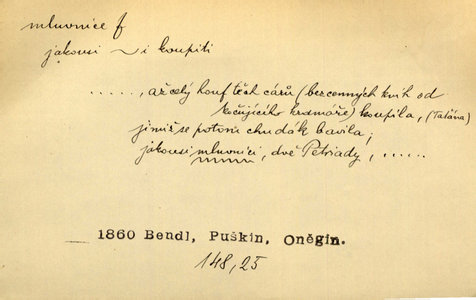 mluvnice f
jakousi ~i koupiti
......, až celý houf těch cárů (bezcenných knih od
kočujícího kramáře) koupila, (Taťána)
jimiž se potom chudák bavila;
jakousi mluvnici, dvě Petriady, ......
— 1860 Bendl, Puškin, Oněgin.
148,25